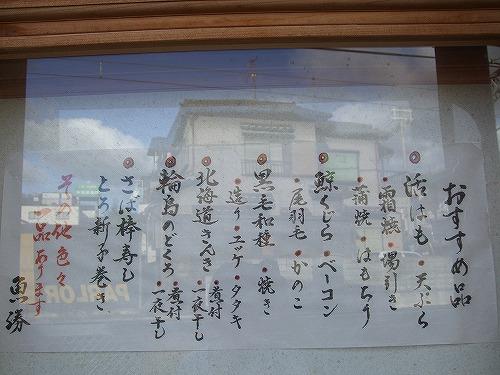 おすすめ品
活はも・天ぷら
・霜焼・湯引き
・蒲焼・はもちり
鯨くじら・ベーコン
・尾羽毛・かのこ
黒毛和種・焼き
・造り・ユッケ・タタキ
北海道きんき・煮付・一夜干し
輪島のどくろ・煮付・一夜干し
さば棒寿し
とろ新子巻き
その他色々
一品あります
魚勝
PARLOR